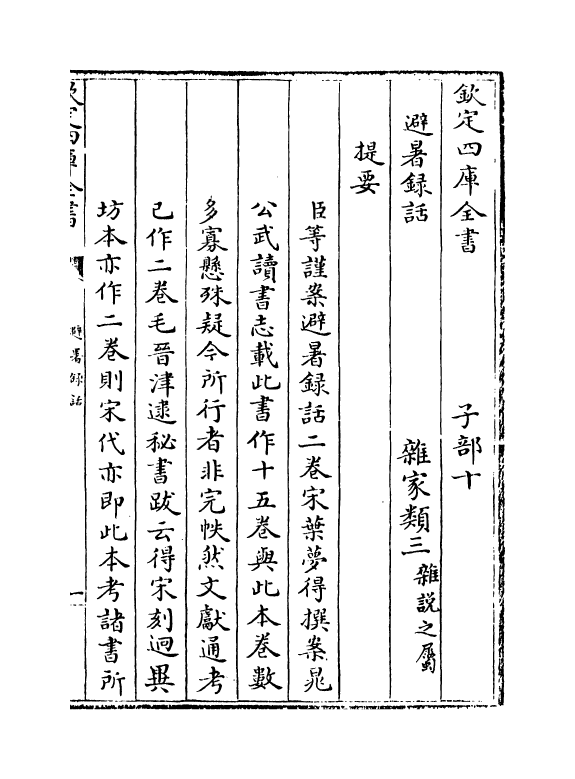 欽定四庫全書　子部十
避暑録話　雜家類三雜説之屬
提要
臣等謹案避暑録話二卷宋葉夢得撰案晁
公武讀書志載此書作十五卷與此本卷數
多寡懸殊疑今所行者非完帙然文獻通考
已作二卷毛晉津逮秘書跋云得宋刻迥異
坊本亦作二卷則宋代亦即此本考諸書所
欽定四庫全書
避暑録話
一